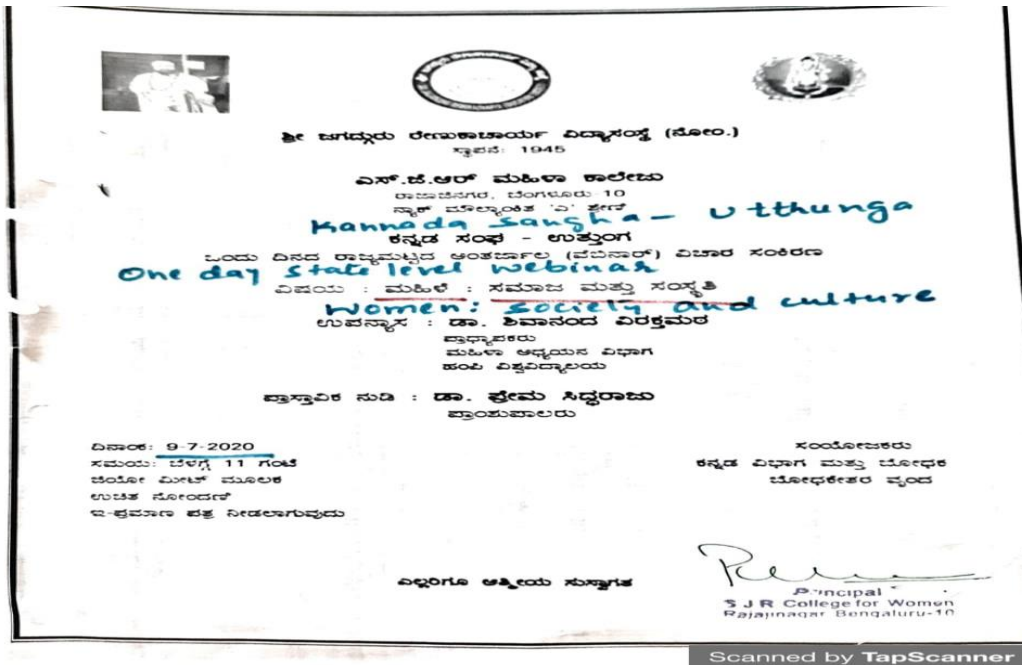 ಶ್ರೀ ಜಗದ್ಗುರು ರೇಣುಕಾಚಾರ್ಯ ವಿದ್ಯಾಸಂಸ್ಥೆ (ನೋಂ.)
ಸ್ಥಾಪನೆ: 1945
ಎಸ್.ಜೆ.ಆರ್ ಮಹಿಳಾ ಕಾಲೇಜು
ರಾಜಾಜಿನಗರ, ಬೆಂಗಳೂರು-10
ನ್ಯಾಕ್ ಮೌಲ್ಯಾಂಕಿತ 'ಎ' ಶ್ರೇಣಿ
Kannada Sangha - Utthunga
ಕನ್ನಡ ಸಂಘ - ಉತ್ತುಂಗ
ಒಂದು ದಿನದ ರಾಜ್ಯಮಟ್ಟದ ಅಂತರ್ಜಾಲ (ವೆಬಿನಾರ್) ವಿಚಾರ ಸಂಕಿರಣ
One day State level Webinar
ವಿಷಯ : ಮಹಿಳೆ : ಸಮಾಜ ಮತ್ತು ಸಂಸ್ಕೃತಿ
Women: society and culture
ಉಪನ್ಯಾಸ : ಡಾ. ಶಿವಾನಂದ ವಿರಕ್ತಮಠ
ಪ್ರಾಧ್ಯಾಪಕರು
ಮಹಿಳಾ ಅಧ್ಯಯನ ವಿಭಾಗ
ಹಂಪಿ ವಿಶ್ವವಿದ್ಯಾಲಯ
ಪ್ರಾಸ್ತಾವಿಕ ನುಡಿ : ಡಾ. ಪ್ರೇಮ ಸಿದ್ಧರಾಜು
ಪ್ರಾಂಶುಪಾಲರು
ದಿನಾಂಕ: 9-7-2020
ಸಮಯ: ಬೆಳಗ್ಗೆ 11 ಗಂಟೆ
ಜಿಯೋ ಮೀಟ್ ಮೂಲಕ
ಉಚಿತ ನೋಂದಣಿ
ಇ-ಪ್ರಮಾಣ ಪತ್ರ ನೀಡಲಾಗುವುದು
ಸಂಯೋಜಕರು
ಕನ್ನಡ ವಿಭಾಗ ಮತ್ತು ಬೋಧಕ
ಬೋಧಕೇತರ ವೃಂದ
ಎಲ್ಲರಿಗೂ ಆತ್ಮೀಯ ಸುಸ್ವಾಗತ
Principal
S J R College for Women
Rajajinagar Bengaluru-10
Scanned by TapScanner